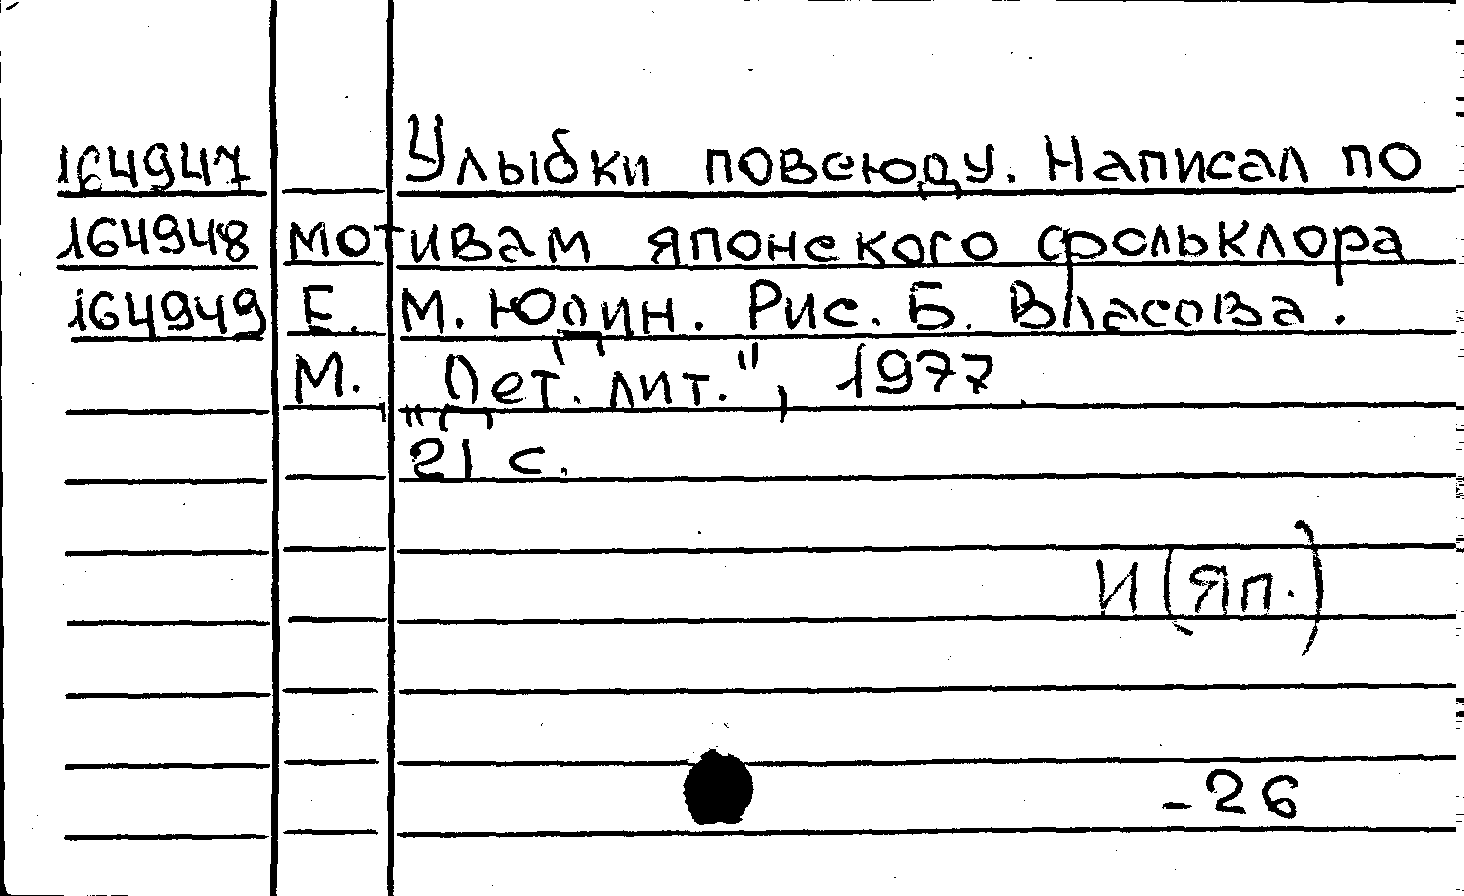 164947 Улыбки повсюду. Написал по
164948 мотивам японского фольклора
164949 Е. М. Юдин. Рис. Б. Власова.
М. „Дет. лит.", 1977
21 с.
И (Яп.)
-26